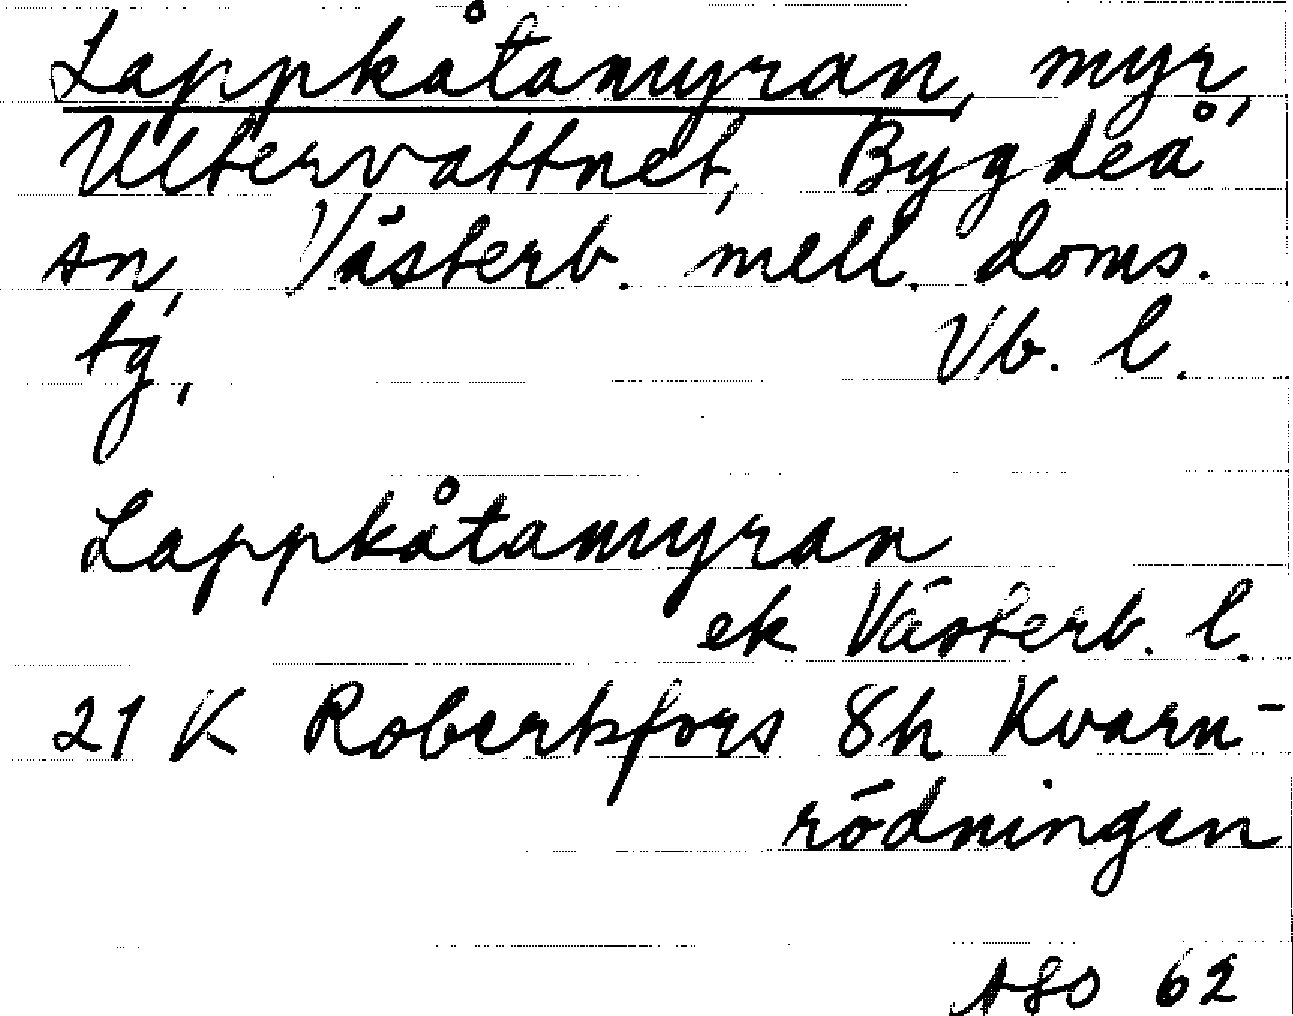 Lappkåtamyran, myr,
Ultervattnet, Bygdeå
sn, Västerb. mell. doms.
tg, Vb. l.
Lappkåtamyran
ek Västerb. l.
21 K Robertsfors 8h Kvarn-
rödningen
ASO 62